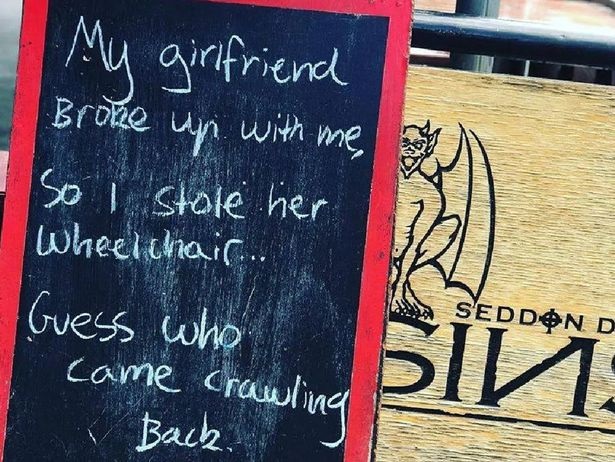 My girlfriend
Broke up with me,
So I stole her
Wheelchair...
Guess who
came crawling
Back.
SEDDON D
SINS